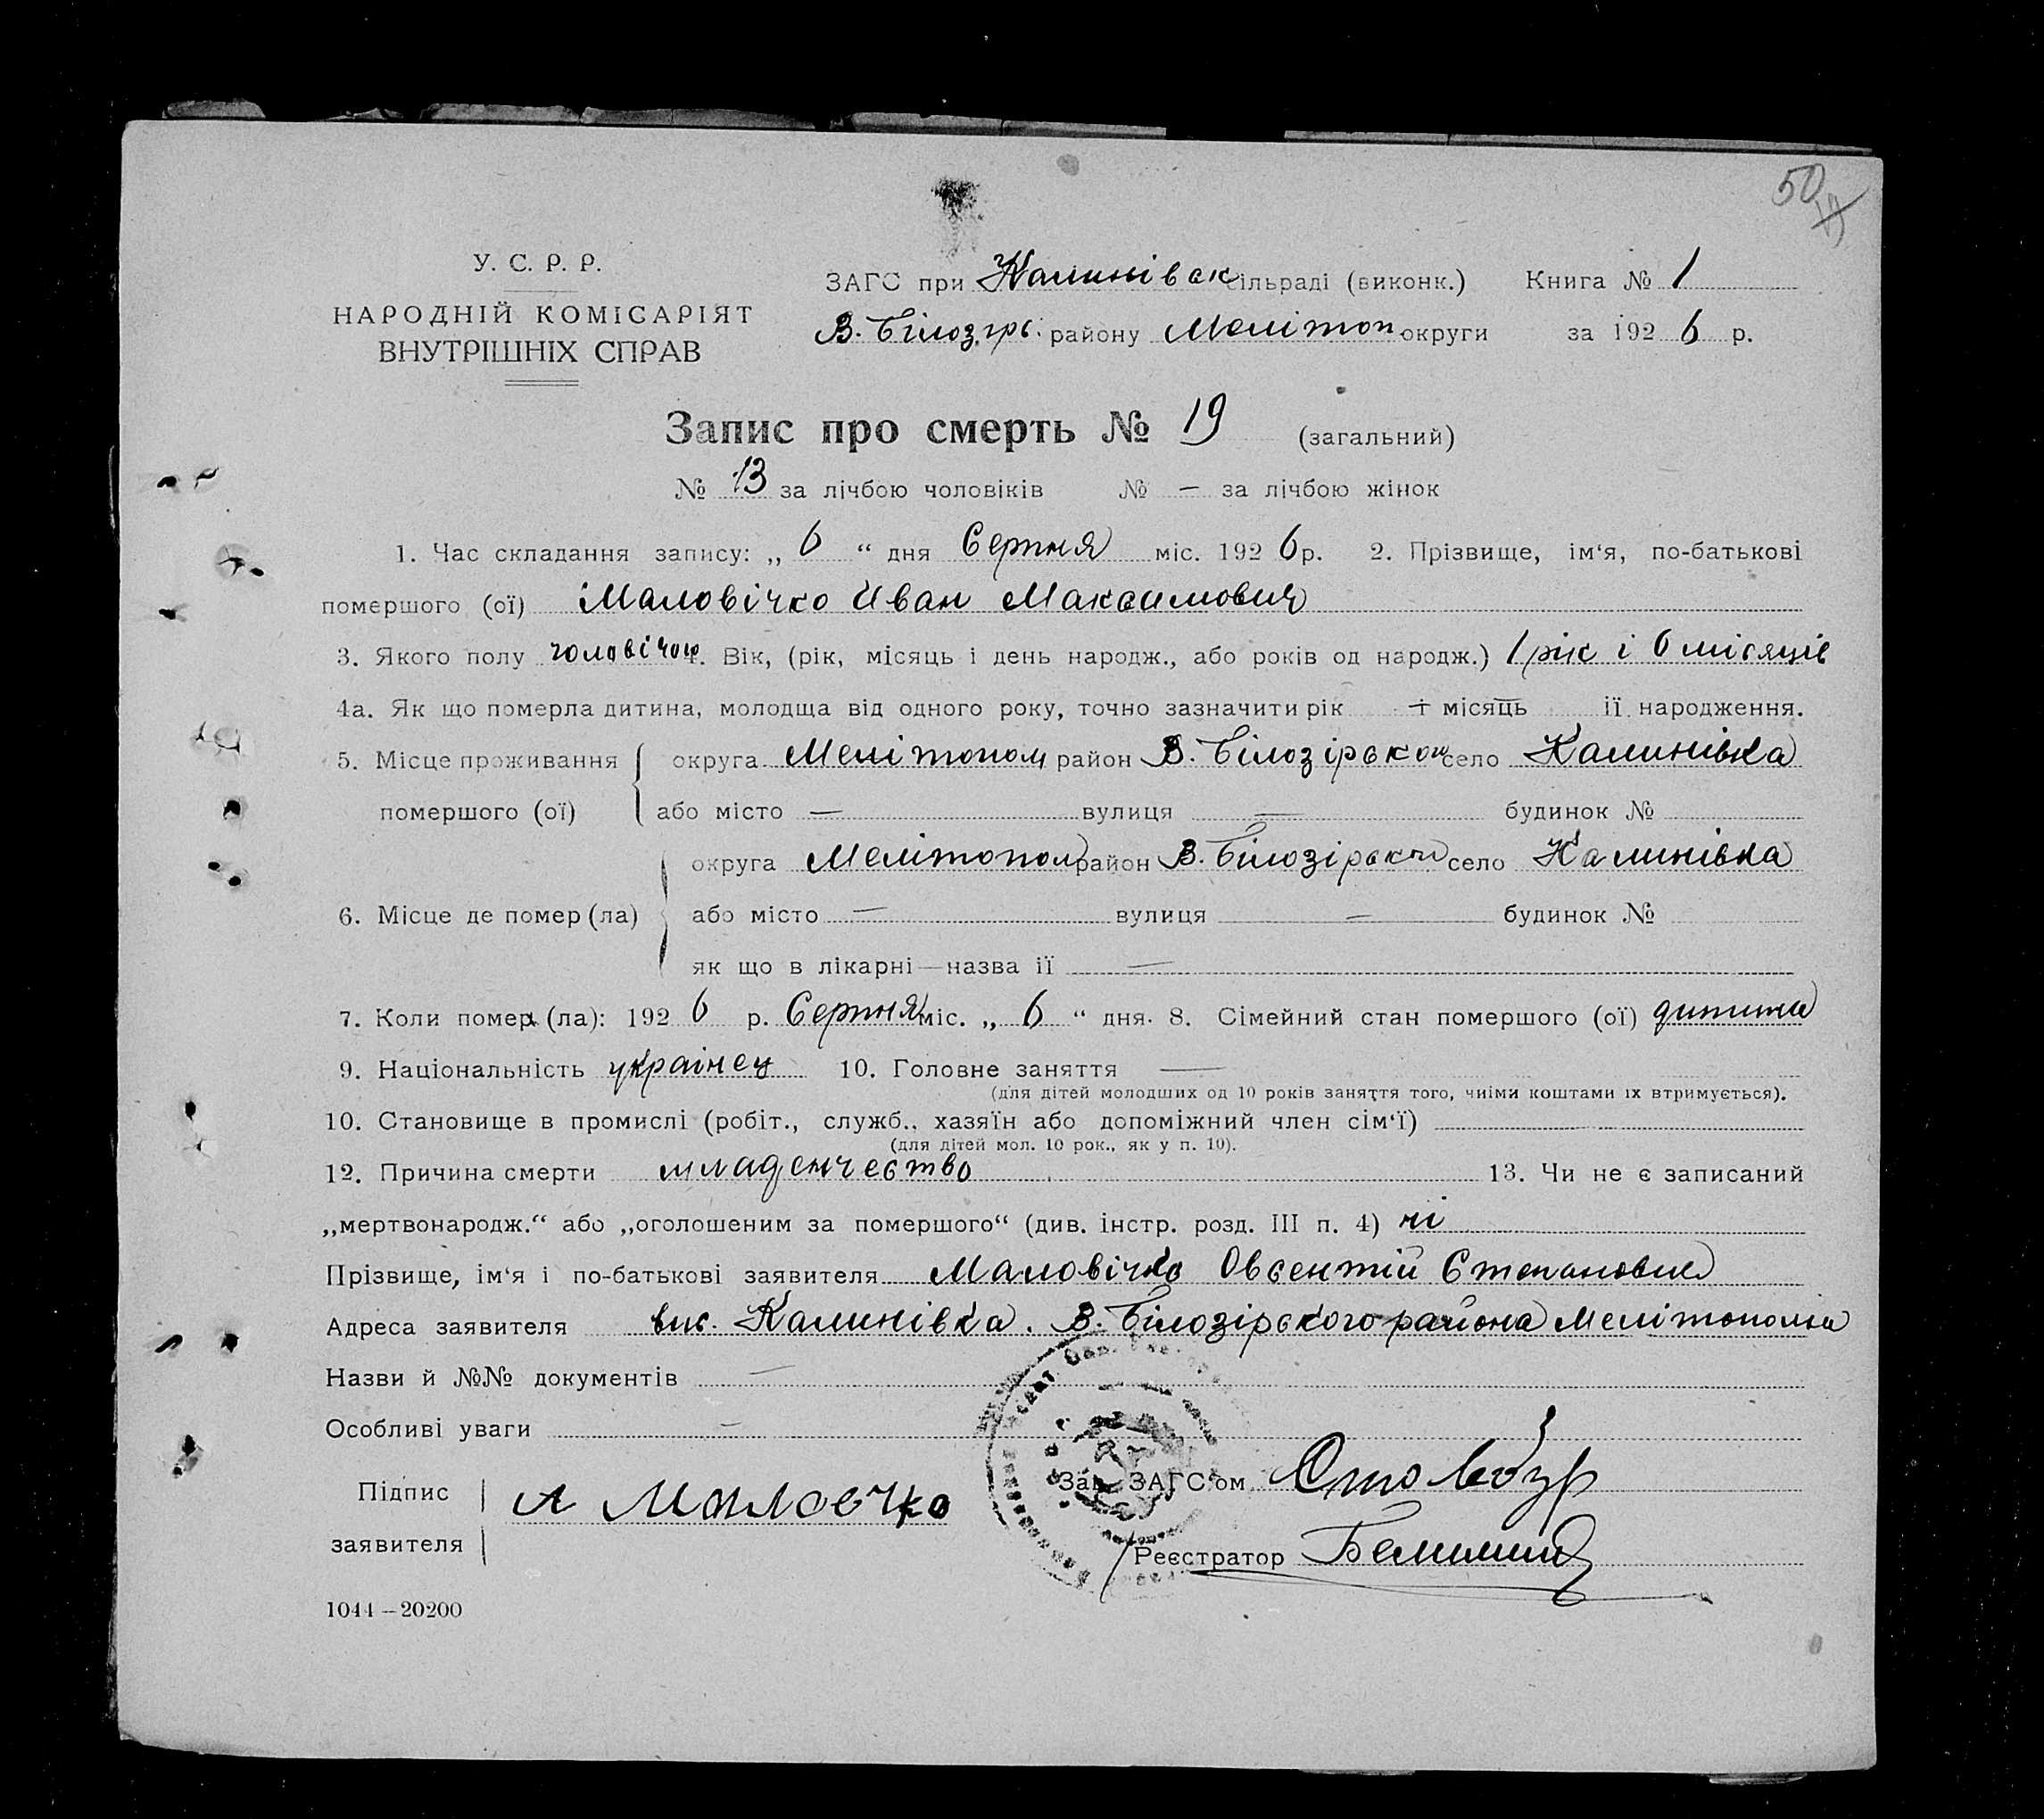 50
У. С. Р. Р.
НАРОДНІЙ КОМІСАРІЯТ
ВНУТРІШНІХ СПРАВ
ЗАГС при Калинівськ сільраді (виконк.) Книга № 1
В. Білозірс. району Мелітоп. округи за 1926 р.
Запис про смерть № 19 (загальний)
№ 13 за лічбою чоловіків № — за лічбою жінок
1. Час складання запису: „ 6 “ дня Серпня міс. 1926 р. 2. Прізвище, ім‘я, по-батькові
помершого (ої) Маловічко Иван Максимович
3. Якого полу чоловічого 4. Вік, (рік, місяць і день народж., або років од народж.) 1 рік і 6 місяців
4а. Як що померла дитина, молодща від одного року, точно зазначити рік місяць її народження.
5. Місце проживання округа Мелітопол район В. Білозірськом село Калинівка
помершого (ої) або місто — вулиця — будинок №
округа Мелітопол район В. Білозірськи село Калинівка
6. Місце де помер (ла) або місто — вулиця — будинок №
як що в лікарні—назва її —
7. Коли помер (ла): 1926 р. Серпня міс. „ 6 “ дня. 8. Сімейний стан помершого (ої) дитина
9. Національність українец 10. Головне заняття —
(для дітей молодших од 10 років заняття того, чиїми коштами їх втримується).
10. Становище в промислі (робіт., служб., хазяїн або допоміжний член сім‘ї)
(для дітей мол. 10 рок., як у п. 10).
12. Причина смерти младенчество 13. Чи не є записаний
„мертвонародж.“ або „оголошеним за помершого“ (див. інстр. розд. III п. 4) ні
Прізвище, ім‘я і по-батькові заявителя Маловічко Овсентій Степанович
Адреса заявителя вис. Калинівка. В. Білозірского района Мелітополя
Назви й №№ документів —
Особливі уваги —
Підпис А Маловчко Зав. ЗАГС‘ом Столбур
заявителя Реєстратор
1044—20200